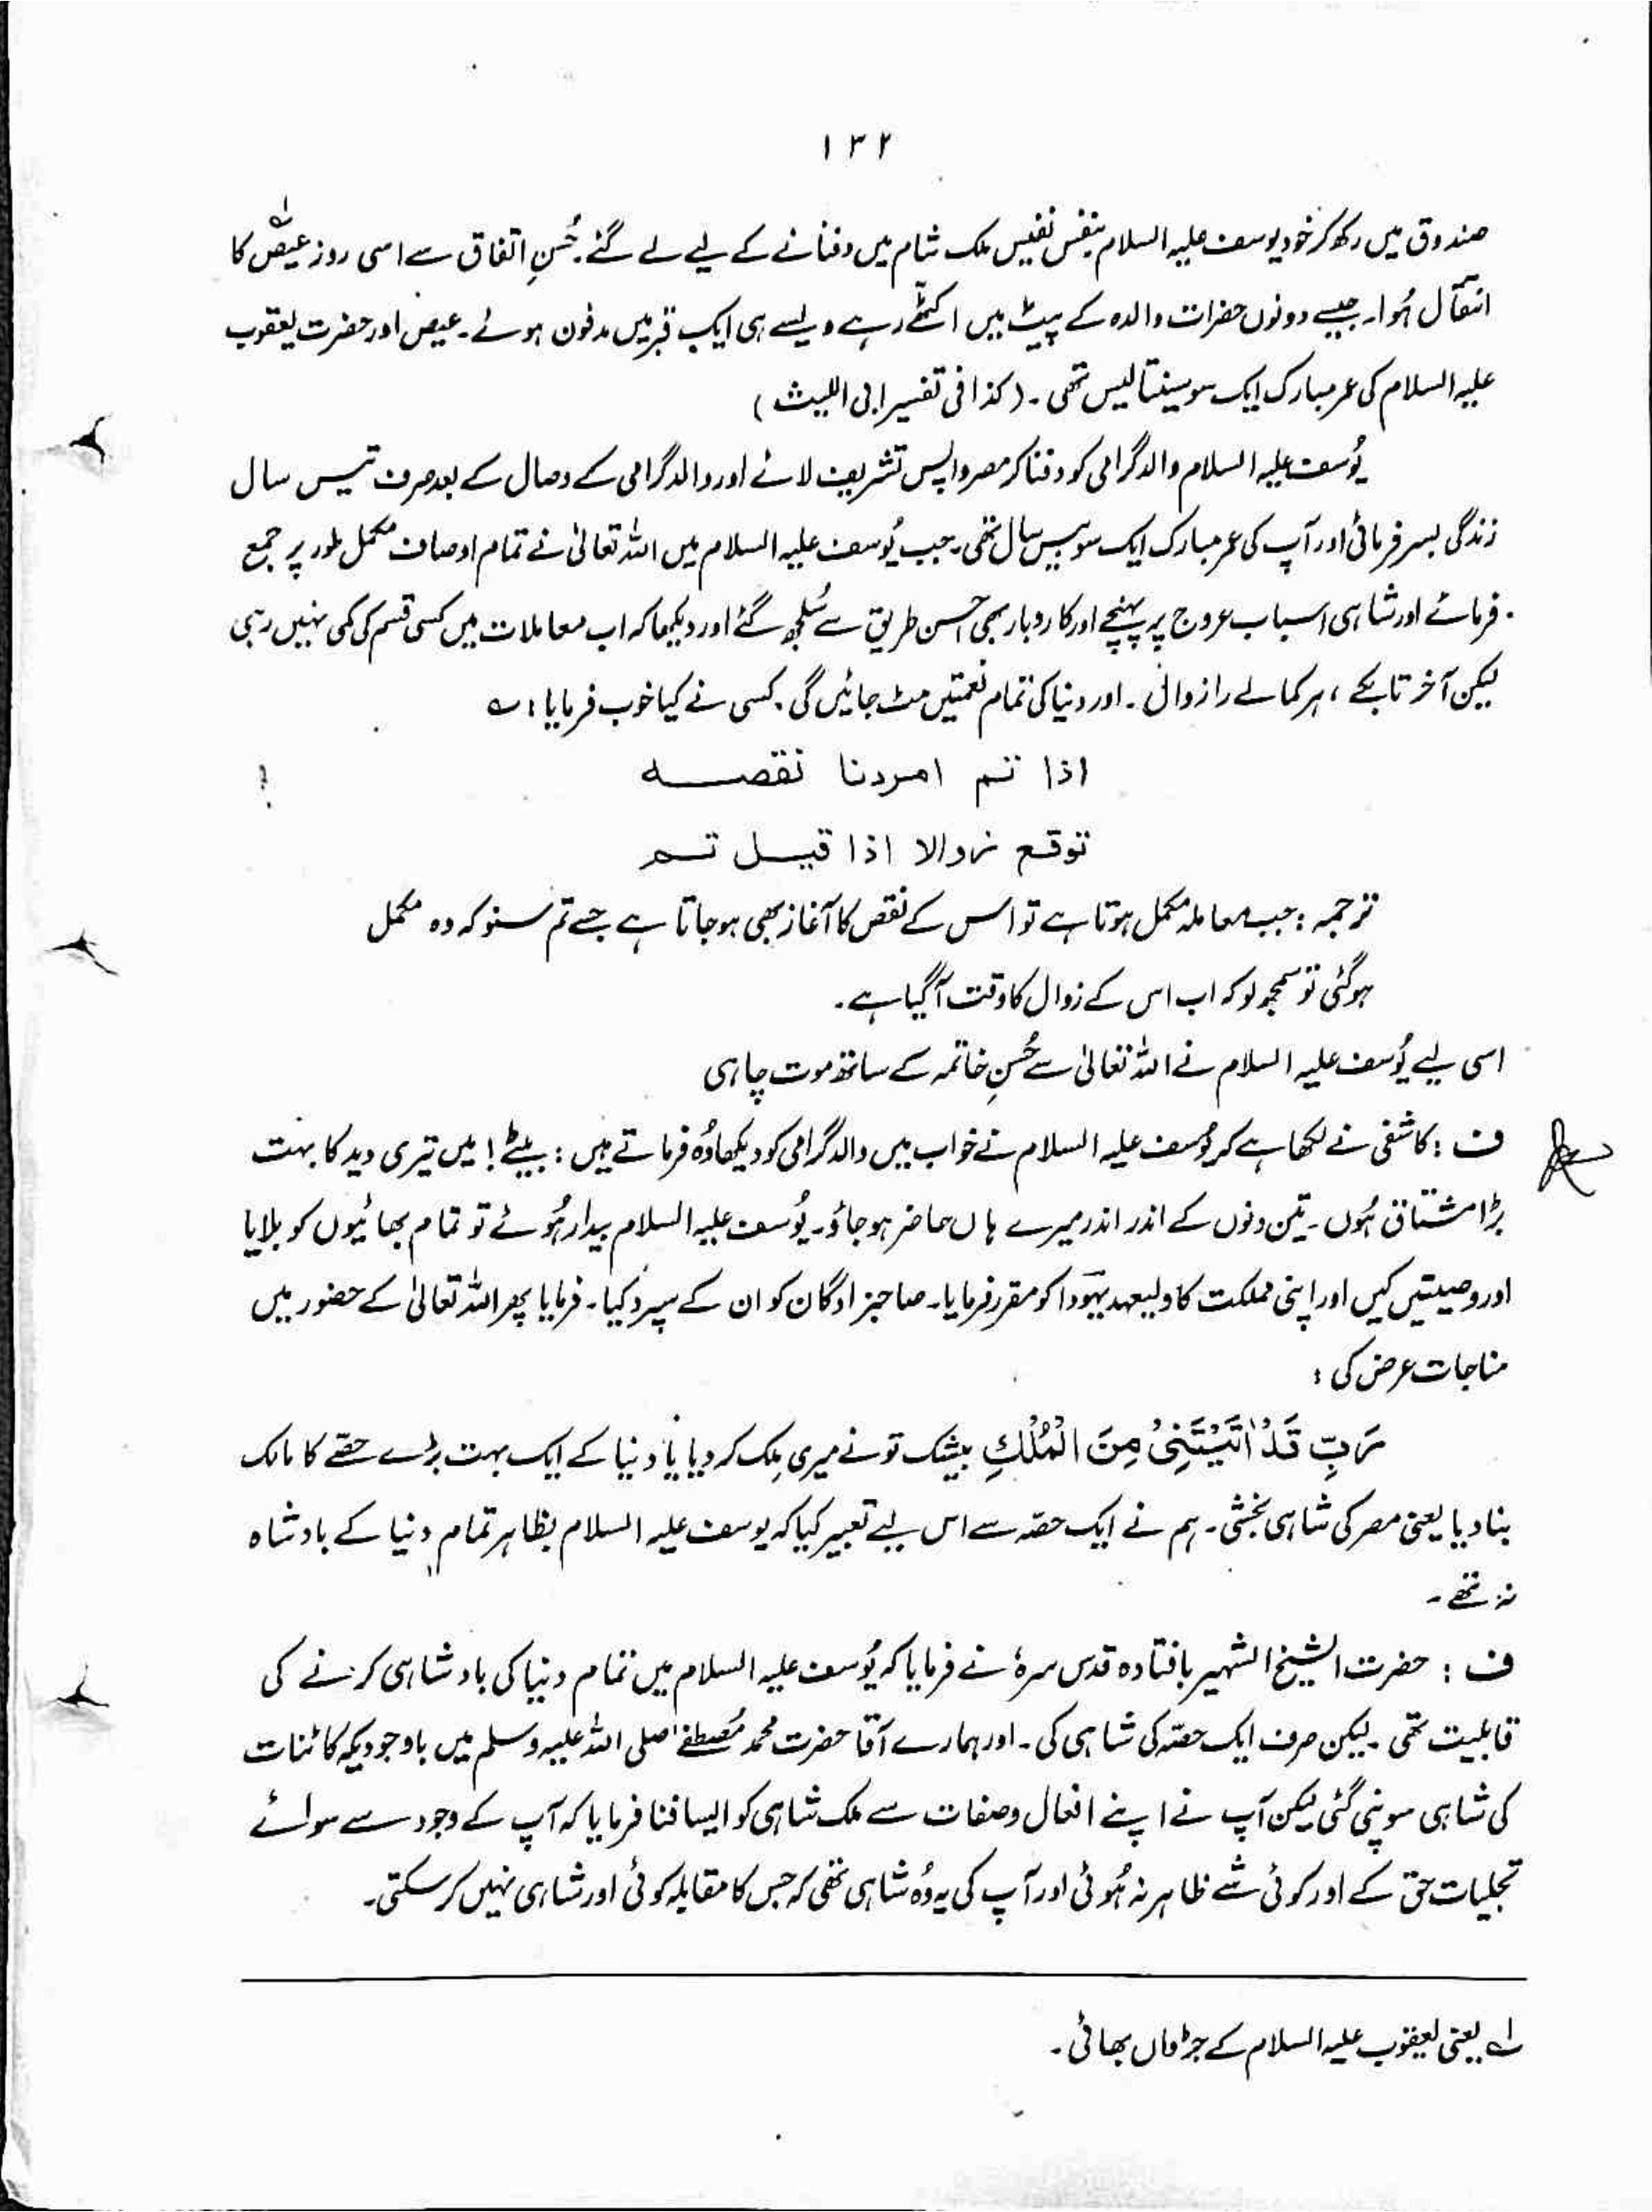 ۱۳۲
صندوق میں رکھ کر خود یوسف علیہ السلام بنفس نفیس ملک شام میں دفنانے کے لیے لے گئے۔ حُسنِ اتفاق سے اسی روز عیص<sup>لہ</sup> کا
انتقال ہُوا۔ جیسے دونوں حضرات والدہ کے پیٹ میں اکٹھے رہے ویسے ہی ایک قبر میں مدفون ہوئے۔ عیص اور حضرت یعقوب
علیہ السلام کی عمر مبارک ایک سو سینتالیس تھی۔ (کذا فی تفسیر ابی اللیث)
یُوسف علیہ السلام والد گرامی کو دفنا کر مصر واپس تشریف لائے اور والد گرامی کے وصال کے بعد صرف تیس سال
زندگی بسر فرمائی اور آپ کی عمر مبارک ایک سو بیس سال تھی۔ جب یُوسف علیہ السلام میں اللہ تعالیٰ نے تمام اوصاف مکمل طور پر جمع
فرمائے اور شاہی اسباب عروج پر پہنچے اور کاروبار بھی احسن طریق سے سُلجھ گئے اور دیکھا کہ اب معاملات میں کسی قسم کی کمی نہیں رہی
لیکن آخر تابکے، ہر کمالے را زوال۔ اور دنیا کی تمام نعمتیں مٹ جائیں گی۔ کسی نے کیا خوب فرمایا: ؎
اذا تم امردنا نقصہ
توقع زوالا اذا قیل تم
ترجمہ: جب معاملہ مکمل ہوتا ہے تو اس کے نقص کا آغاز بھی ہو جاتا ہے جسے تم سنو کہ وہ مکمل
ہوگئی تو سمجھ لو کہ اب اس کے زوال کا وقت آگیا ہے۔
اسی لیے یُوسف علیہ السلام نے اللہ تعالیٰ سے حُسنِ خاتمہ کے ساتھ موت چاہی
ف: کاشفی نے لکھا ہے کہ یُوسف علیہ السلام نے خواب میں والد گرامی کو دیکھا وُہ فرماتے ہیں: بیٹے! میں تیری دید کا بہت
بڑا مشتاق ہُوں۔ تین دنوں کے اندر اندر میرے ہاں حاضر ہو جاؤ۔ یُوسف علیہ السلام بیدار ہُوئے تو تمام بھائیوں کو بلایا
اور وصیتیں کیں اور اپنی مملکت کا ولیعہد یہودا کو مقرر فرمایا۔ صاحبزادگان کو ان کے سپرد کیا۔ فرمایا پھر اللہ تعالیٰ کے حضور میں
مناجات عرض کی:
رَبِّ قَدْ اٰتَیْتَنِیْ مِنَ الْمُلْكِ بیشک تو نے میری مِلک کر دیا یا دنیا کے ایک بہت بڑے حصّے کا مالک
بنا دیا یعنی مصر کی شاہی بخشی۔ ہم نے ایک حصّہ سے اس لیے تعبیر کیا کہ یوسف علیہ السلام بظاہر تمام دنیا کے بادشاہ
نہ تھے۔
ف: حضرت الشیخ الشہیر بافتادہ قدس سرہٗ نے فرمایا کہ یُوسف علیہ السلام میں تمام دنیا کی بادشاہی کرنے کی
قابلیت تھی۔ لیکن صرف ایک حصّہ کی شاہی کی۔ اور ہمارے آقا حضرت محمد مُصطفےٰ صلی اللہ علیہ وسلم میں باوجودیکہ کائنات
کی شاہی سونپی گئی لیکن آپ نے اپنے افعال و صفات سے ملک شاہی کو ایسا فنا فرمایا کہ آپ کے وجود سے سوائے
تجلیات حق کے اور کوئی شے ظاہر نہ ہُوئی اور آپ کی یہ وُہ شاہی تھی کہ جس کا مقابلہ کوئی اور شاہی نہیں کر سکتی۔
لہ یعنی یعقوب علیہ السلام کے جڑواں بھائی۔